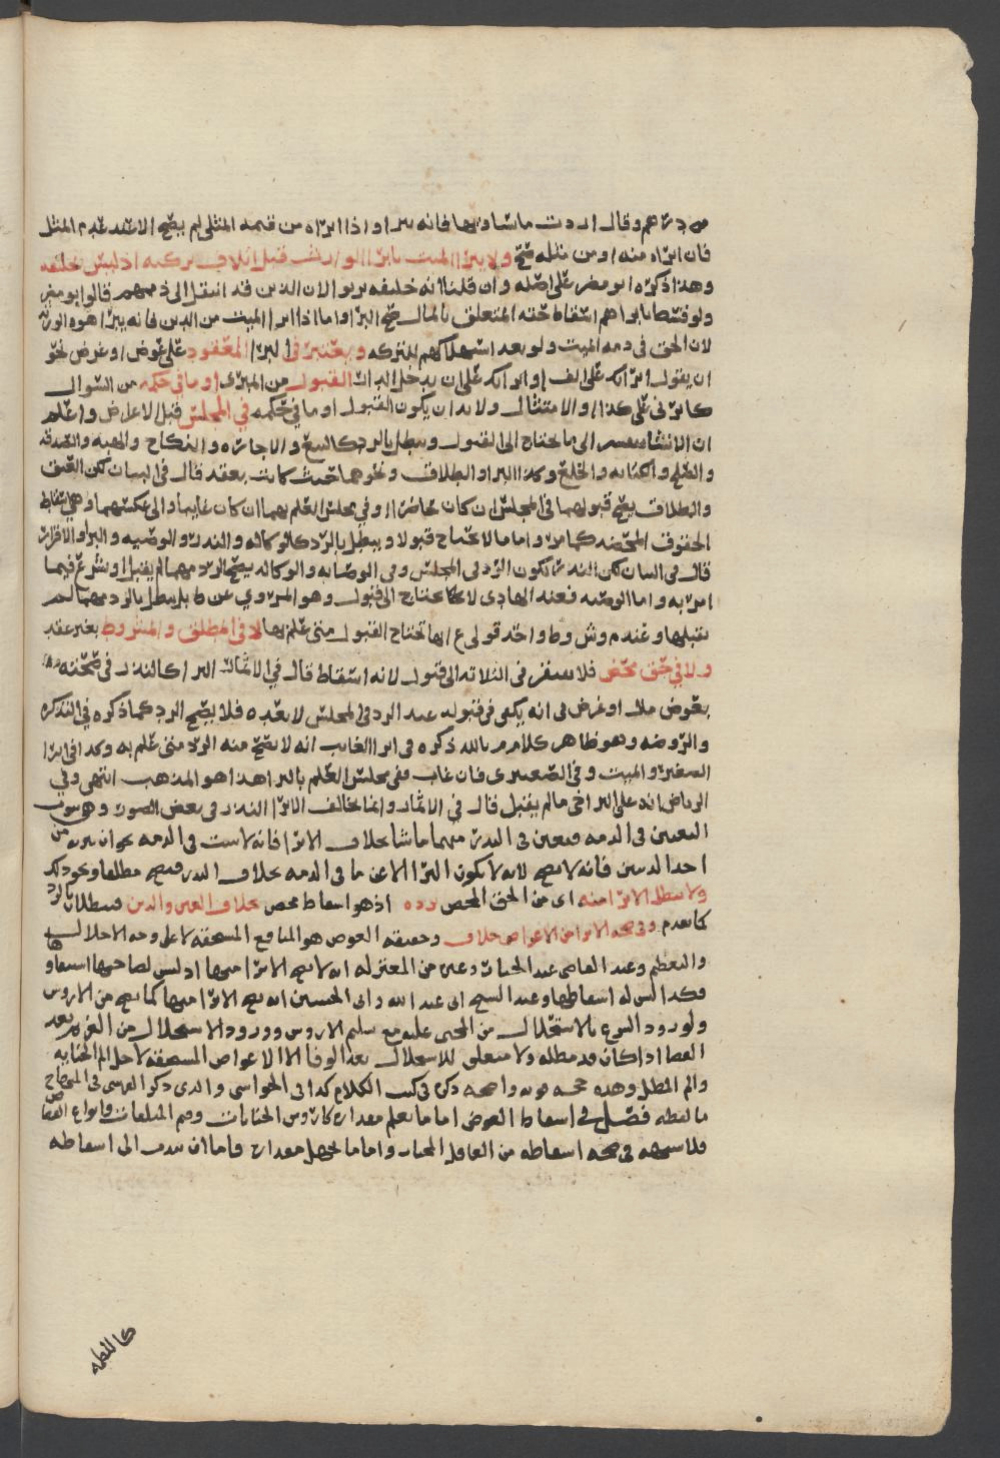 درهم وقال اردت ما ساويها فانه يبرا واذا ابراه من قيمه المثلي لم يصح الا عند عدم المثل
فان ابراه منه او من مثله صح ولا يبرا الميت بابرا الوارث قبل اتلاف تركته اذ ليس بخليفه
وهذا ذكره ابو مضر على اصله وان قلنا انه خليفه بريو الان الدين قد انتقل الى ذمتهم قالوا ابو مضر
ولو قصدنا بابراهم اسقاط حقه المتعلق بالمال صح البرا واما اذا ابرا الميت من الدين فانه يبرا هو والورثه
لان الحق في ذمه الميت ولو بعد استهلاكهم للتركه ويعتبر في البرا المعقود على عوض او غرض نحو
ان يقول ابراتك على الف او ابراتك على ان يدخل الدار القبول من المبرى او ما في حكمه من السوال
كابرني على كذا او الامتثال ولا بد ان يكون القبول او ما في حكمه في المجلس قبل الاعراض واعلم
ان الانشا ينقسم الى ما يحتاج الى القبول ويبطل بالرد كالبيع والاجاره والنكاح والهبه والصدقه
والصلح والكتابه والخلع وكذا البرا والطلاق ونحوهما حيث كانت بعقد قال في البيان لكن العتق
والطلاق يصح قبولهما في المجلس ان كان حاضرا او في مجلس العلم بهما ان كان غايبا والى عكسهما وهي اسقاط
الحقوق المحضه كما مر واما ما لا يحتاج قبولا ويبطل بالرد كالوكاله والنذر والوصيه والبرا والاقرار
قال في البيان لكن النذر يكون الرد في المجلس وفي الوصايه والوكاله يصح الرد مهما لم يقبل او شرع فيما
امر به واما الوصيه فعند الهادي لا يحتاج الى قبول وهو المروي عن ط بل يبطل بالرد مهما لم
يقبلها وعند م وش وط واحد قولي ع انها تحتاج القبول متى علم بها لا في المطلق والمشروط بغير عقد
ولا في حق محض فلا يفتقر في الثلاثه الى قبول لانه اسقاط قال في الاثمار البرا كالنذر في صحته
بعوض مال او غرض في انه يكفي في قبوله عدم الرد في المجلس لا بعده فلا يصح الرد كما ذكره في التذكره
والروضه وهو ظاهر كلام م بالله ذكره في ابرا الغايب انه لا يصح منه الرد متى علم به وكذا في ابرا
الصغير والميت وفي الصعيتري فان غاب ففي مجلس العلم بالبرا هذا هو المذهب انتهى وفي
الرياض انه على التراخي ما لم يقبل قال في الاثمار وانما يخالف الابرا النذر في بعض الصور وهو ثبوت
التعيين في الذمه فيعين في النذر منهما ما شا بخلاف الابرا فانه لا يثبت في الذمه نحو ان يبريه من
احد الدينين فانه لا يصح لانه لا يكون البرا الا عن ما في الذمه بخلاف النذر فيصح مطلقا ونحو ذلك
ولا يبطل الابرا منه اى من الحق المحض برده اذ هو اسقاط محض بخلاف العين والدين فيبطلان بالرد
كما تقدم وفي صحه الابرا من الاعواض خلاف وحقيقه العوض هو المنافع المستحقه لا على وجه الاجلال
والتعظيم وعند القاضي عبد الجبار وغيره من المعتزله انه لا يصح الابرا منها اذ ليس لصاحبها استيفاو
فكذا ليس له اسقاطها وعند الشيخ ابي عبد الله وابي الحسين انه يصح الابرا منها كما يصح من الاروش
ولورود الشرع بالاستحلال من المجني عليه مع تسليم الاروش وورود الاستحلال من الغريم بعد
القضا اذا كان قد مطله ولا متعلق للاستحلال بعد الوفا الا الاعواض المستحقه لاجل الم الجنايه
والم المطل وهذه حجه قويه واضحه ذكره في كتب الكلام كذا في الحواشي والذي ذكر القرشي في المنهاج
ما لفظه فصل في اسقاط العوض اما ما يعلم مقداره كاروش الجنايات وقيم المتلفات وانواع القصاص
فلا شبهه في صحه اسقاطه من العاقل المختار واما ما يجهل مقداره فاما ان يندب الى اسقاطه
كالغيبه